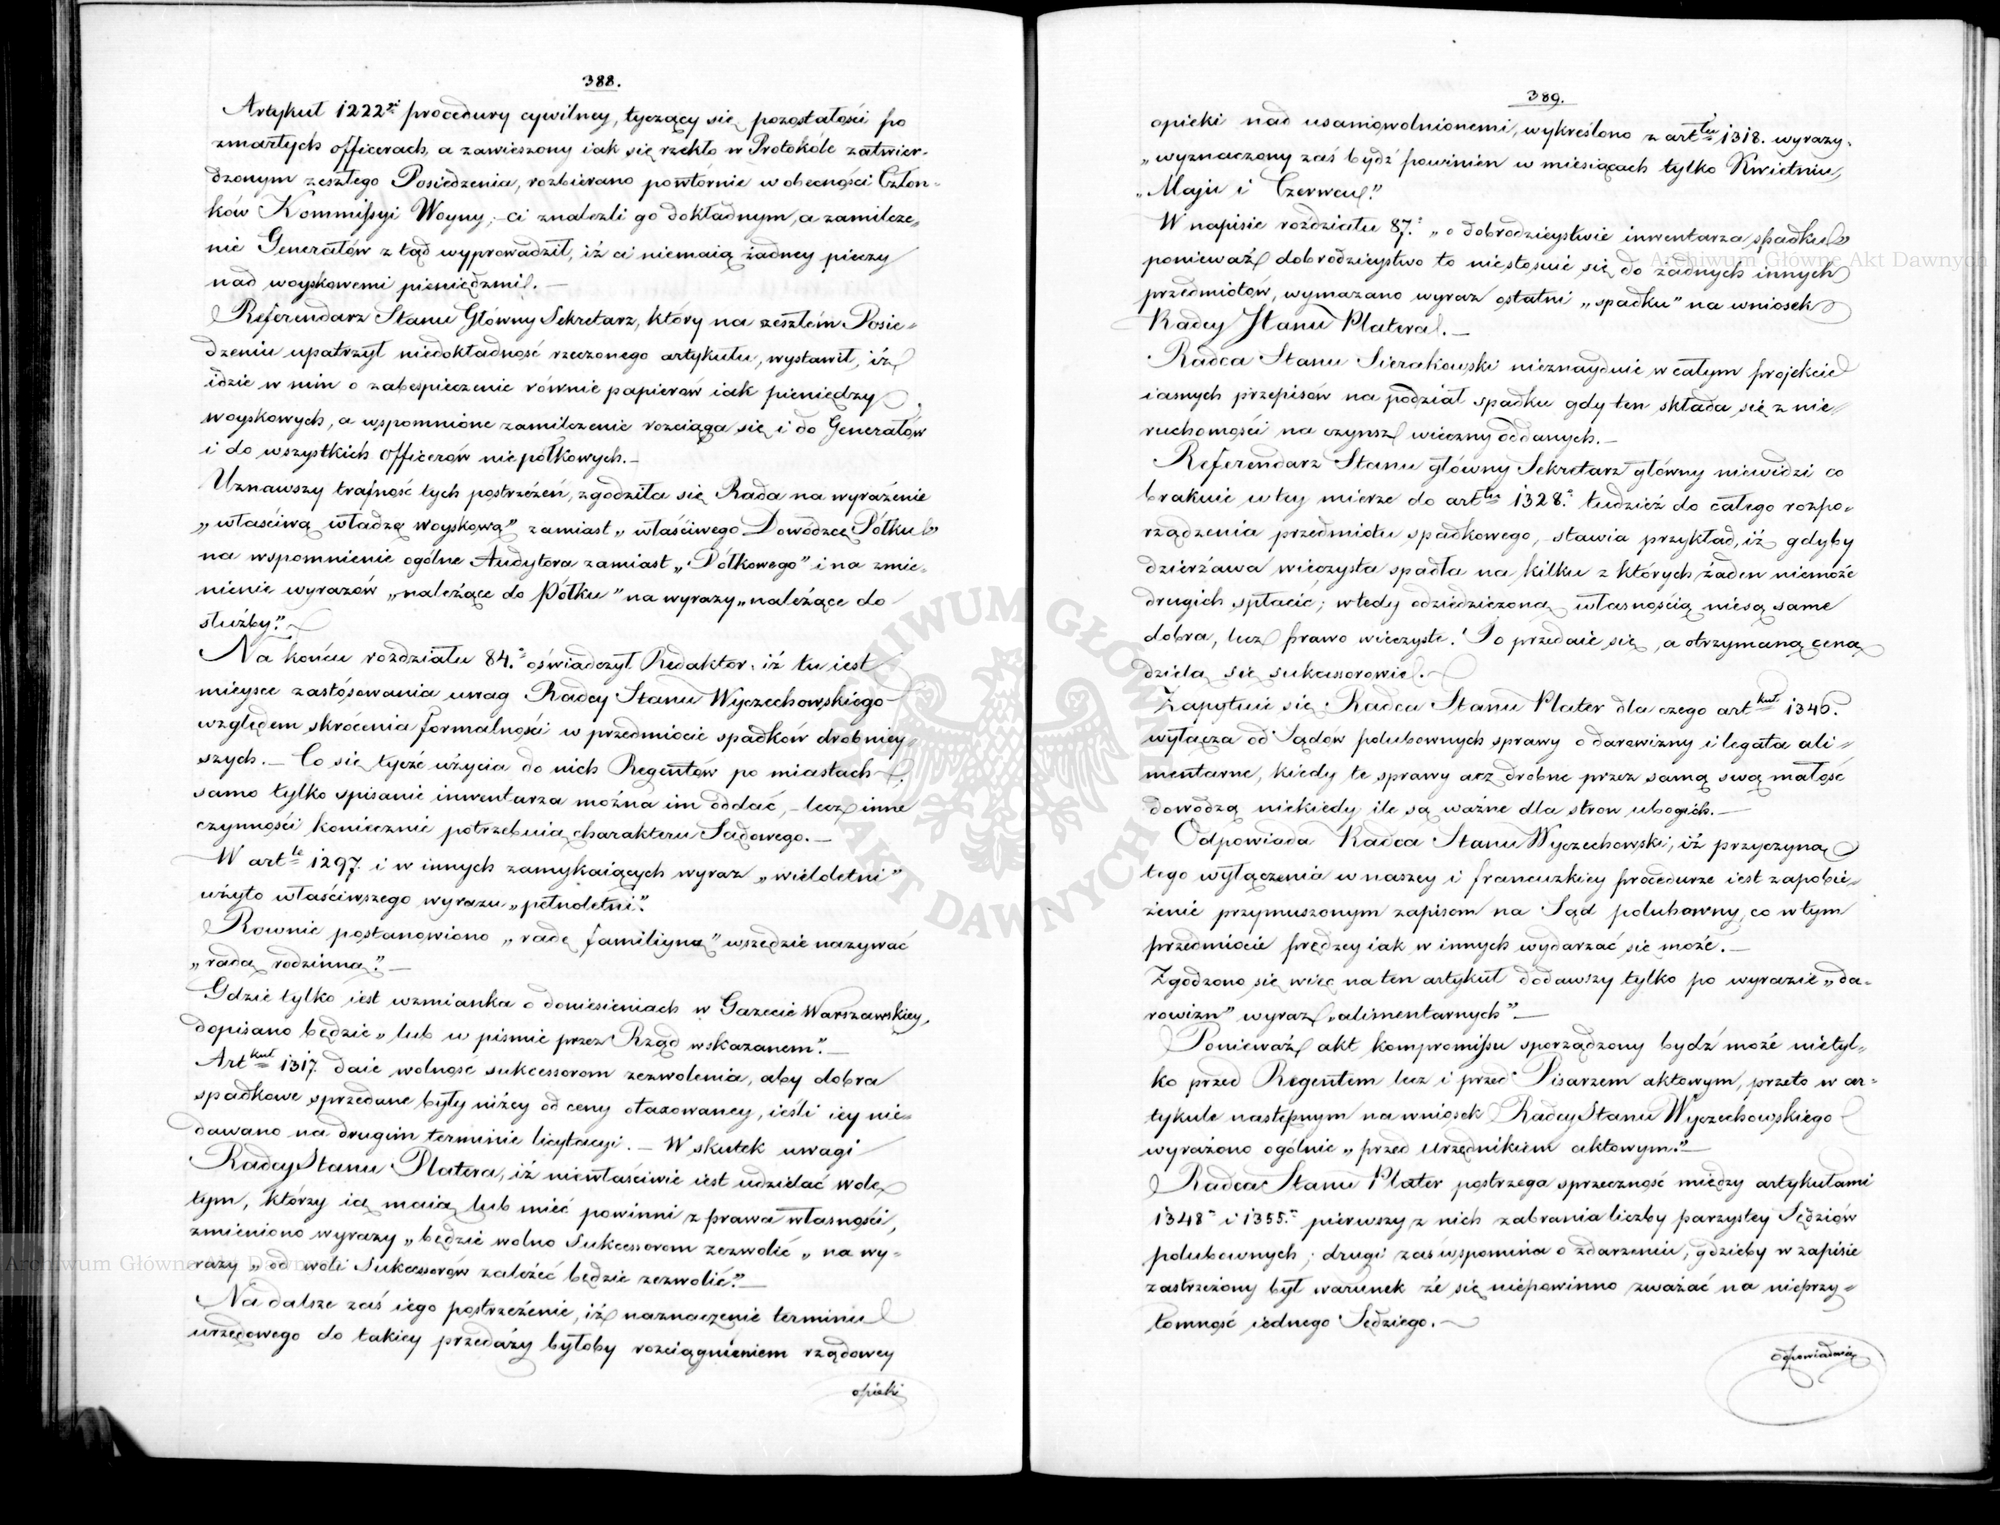 388.
Artykuł 1222gi procedury cywilney, tyczący się pozostałości po
zmarłych officerach, a zawieszony iak się rzekło w Protokóle zatwier-
dzonym zeszłego Posiedzenia, rozbierano powtornie w obecności Człon-
ków Kommissyi Woyny; ci znalezli go dokładnym, a zamilcze-
nie Generałów z tąd wyprowadził, iż ci niemaią żadney pieczy
nad woyskowemi pieniędzmi. —
Referendarz Stanu Główny Sekretarz, który na zeszłem Posie-
dzeniu upatrzył niedokładność rzeczonego artykułu, wystawił, iż
idzie w nim o zabespieczenie równie papierów iak pieniędzy
woyskowych, a wspomnione zamilczenie rozciąga się i do Generałów
i do wszystkich officerów niepółkowych. —
Uznawszy trafność tych postrzeżeń, zgodziła się Rada na wyrażenie
„właściwą władzę woyskową” zamiast „właściwego Dowódzcę Półku”
na wspomnienie ogólne Audytora zamiast „Półkowego” i na zmie-
nienie wyrazów „należące do Półku” na wyrazy „należące do
służby.” —
Na końcu rozdziału 84. oświadczył Redaktor, iż tu iest
mieysce zastósowania uwag Radcy Stanu Wyczechowskiego
względem skrócenia formalności w przedmiocie spadków drobniey-
szych. — Co się tycze użycia do nich Regentów po miastach
samo tylko spisanie inwentarza można im oddać, — lecz inne
czynności koniecznie potrzebuią charakteru Sądowego. —
W artle 1297 i w innych zamykaiących wyraz „wieloletni”
użyto właściwszego wyrazu „pełnoletni”.
Rownie postanowiono „radę familiyną” wszędzie nazywać
„radą rodzinną.” —
Gdzie tylko iest wzmianka o doniesieniach w Gazecie Warszawskiey,
dopisano będzie „lub w piśmie przez Rząd wskazanem.” —
Artkuł 1317 daie wolność sukcessorom zezwolenia, aby dobra
spadkowe sprzedane były niżey od ceny otaxowaney, ieśli iey nie-
dawano na drugim terminie licytacyi. — W skutek uwagi
Radcy Stanu Platera, iż niewłaściwie iest udzielać wolę
tym, którzy ią maią lub mieć powinni z prawa własności,
zmieniono wyrazy „będzie wolno Sukcessorom zezwolić” na wy-
razy „od woli Sukcessorów zależeć będzie zezwolić.” —
Na dalsze zaś iego postrzeżenie, iż naznaczenie terminu
urzędowego do takiey przedaży byłoby rozciągnieniem rządowey
opieki
389.
opieki nad usamowolnionemi, wykreślono z arttłu 1318. wyrazy.
„wyznaczony zaś bydź powinien w miesiącach tylko Kwietniu,
„Maju i Czerwcu.”
W napisie rozdziału 87. „o dobrodzieystwie inwentarza spadku”
ponieważ dobrodzieystwo to niestosuie się do żadnych innych
przedmiotów, wymazano wyraz ostatni „spadku” na wniosek
Radcy Stanu Platera. —
Radca Stanu Sierakowski nieznayduie w całym projekcie
iasnych przepisów na podział spadku gdy ten składa się z nie-
ruchomości na czynsz wieczny oddanych. —
Referendarz Stanu główny Sekretarz główny niewidzi co
brakuie w tey mierze do arttłu 1328. tudzież do całego rozpo-
rządzenia przedmiotu spadkowego, stawia przykład, iż gdyby
dzierżawa wieczysta spadła na kilku z których żaden niemoże
drugich spłacić; wtedy odziedziczoną własnością niesą same
dobra, lecz prawo wieczyste. To przedaie się, a otrzymaną ceną
dzielą się sukcessorowie. —
Zapytuie się Radca Stanu Plater dla czego artkuł 1346.
wyłącza od Sądów polubownych sprawy o darowizny i legata ali-
mentarne, kiedy te sprawy acz drobne przez samą swą małość
dowodzą niekiedy ile są ważne dla stron ubogich. —
Odpowiada Radca Stanu Wyczechowski, iż przyczyną
tego wyłączenia w naszey i francuzkiey procedurze iest zapobie-
żenie przymuszonym zapisom na Sąd polubowny, co w tym
przedmiocie prędzey iak w innych wydarzać się może. —
Zgodzono się więc na ten artykuł dodawszy tylko po wyrazie „da-
rowizn” wyraz „alimentarnych”. —
Ponieważ akt kompromissu sporządzony bydź może nietyl-
ko przed Regentem lecz i przed Pisarzem aktowym, przeto w ar-
tykule następnym na wniosek Radcy Stanu Wyczechowskiego
wyrażono ogólnie „przed Urzędnikiem aktowym.” —
Radca Stanu Plater postrzega sprzeczność między artykułami
1348 i 1355. pierwszy z nich zabrania liczby parzystey Sędziów
polubownych; drugi zaś wspomina o zdarzeniu, gdzieby w zapisie
zastrzeżony był warunek że się niepowinno zważać na nieprzy-
tomność iednego Sędziego. —
Odpowiadaią
Archiwum Główne Akt Dawnych
Archiwum Główne Akt Dawnych
ARCHIWUM GŁÓWNE AKT DAWNYCH